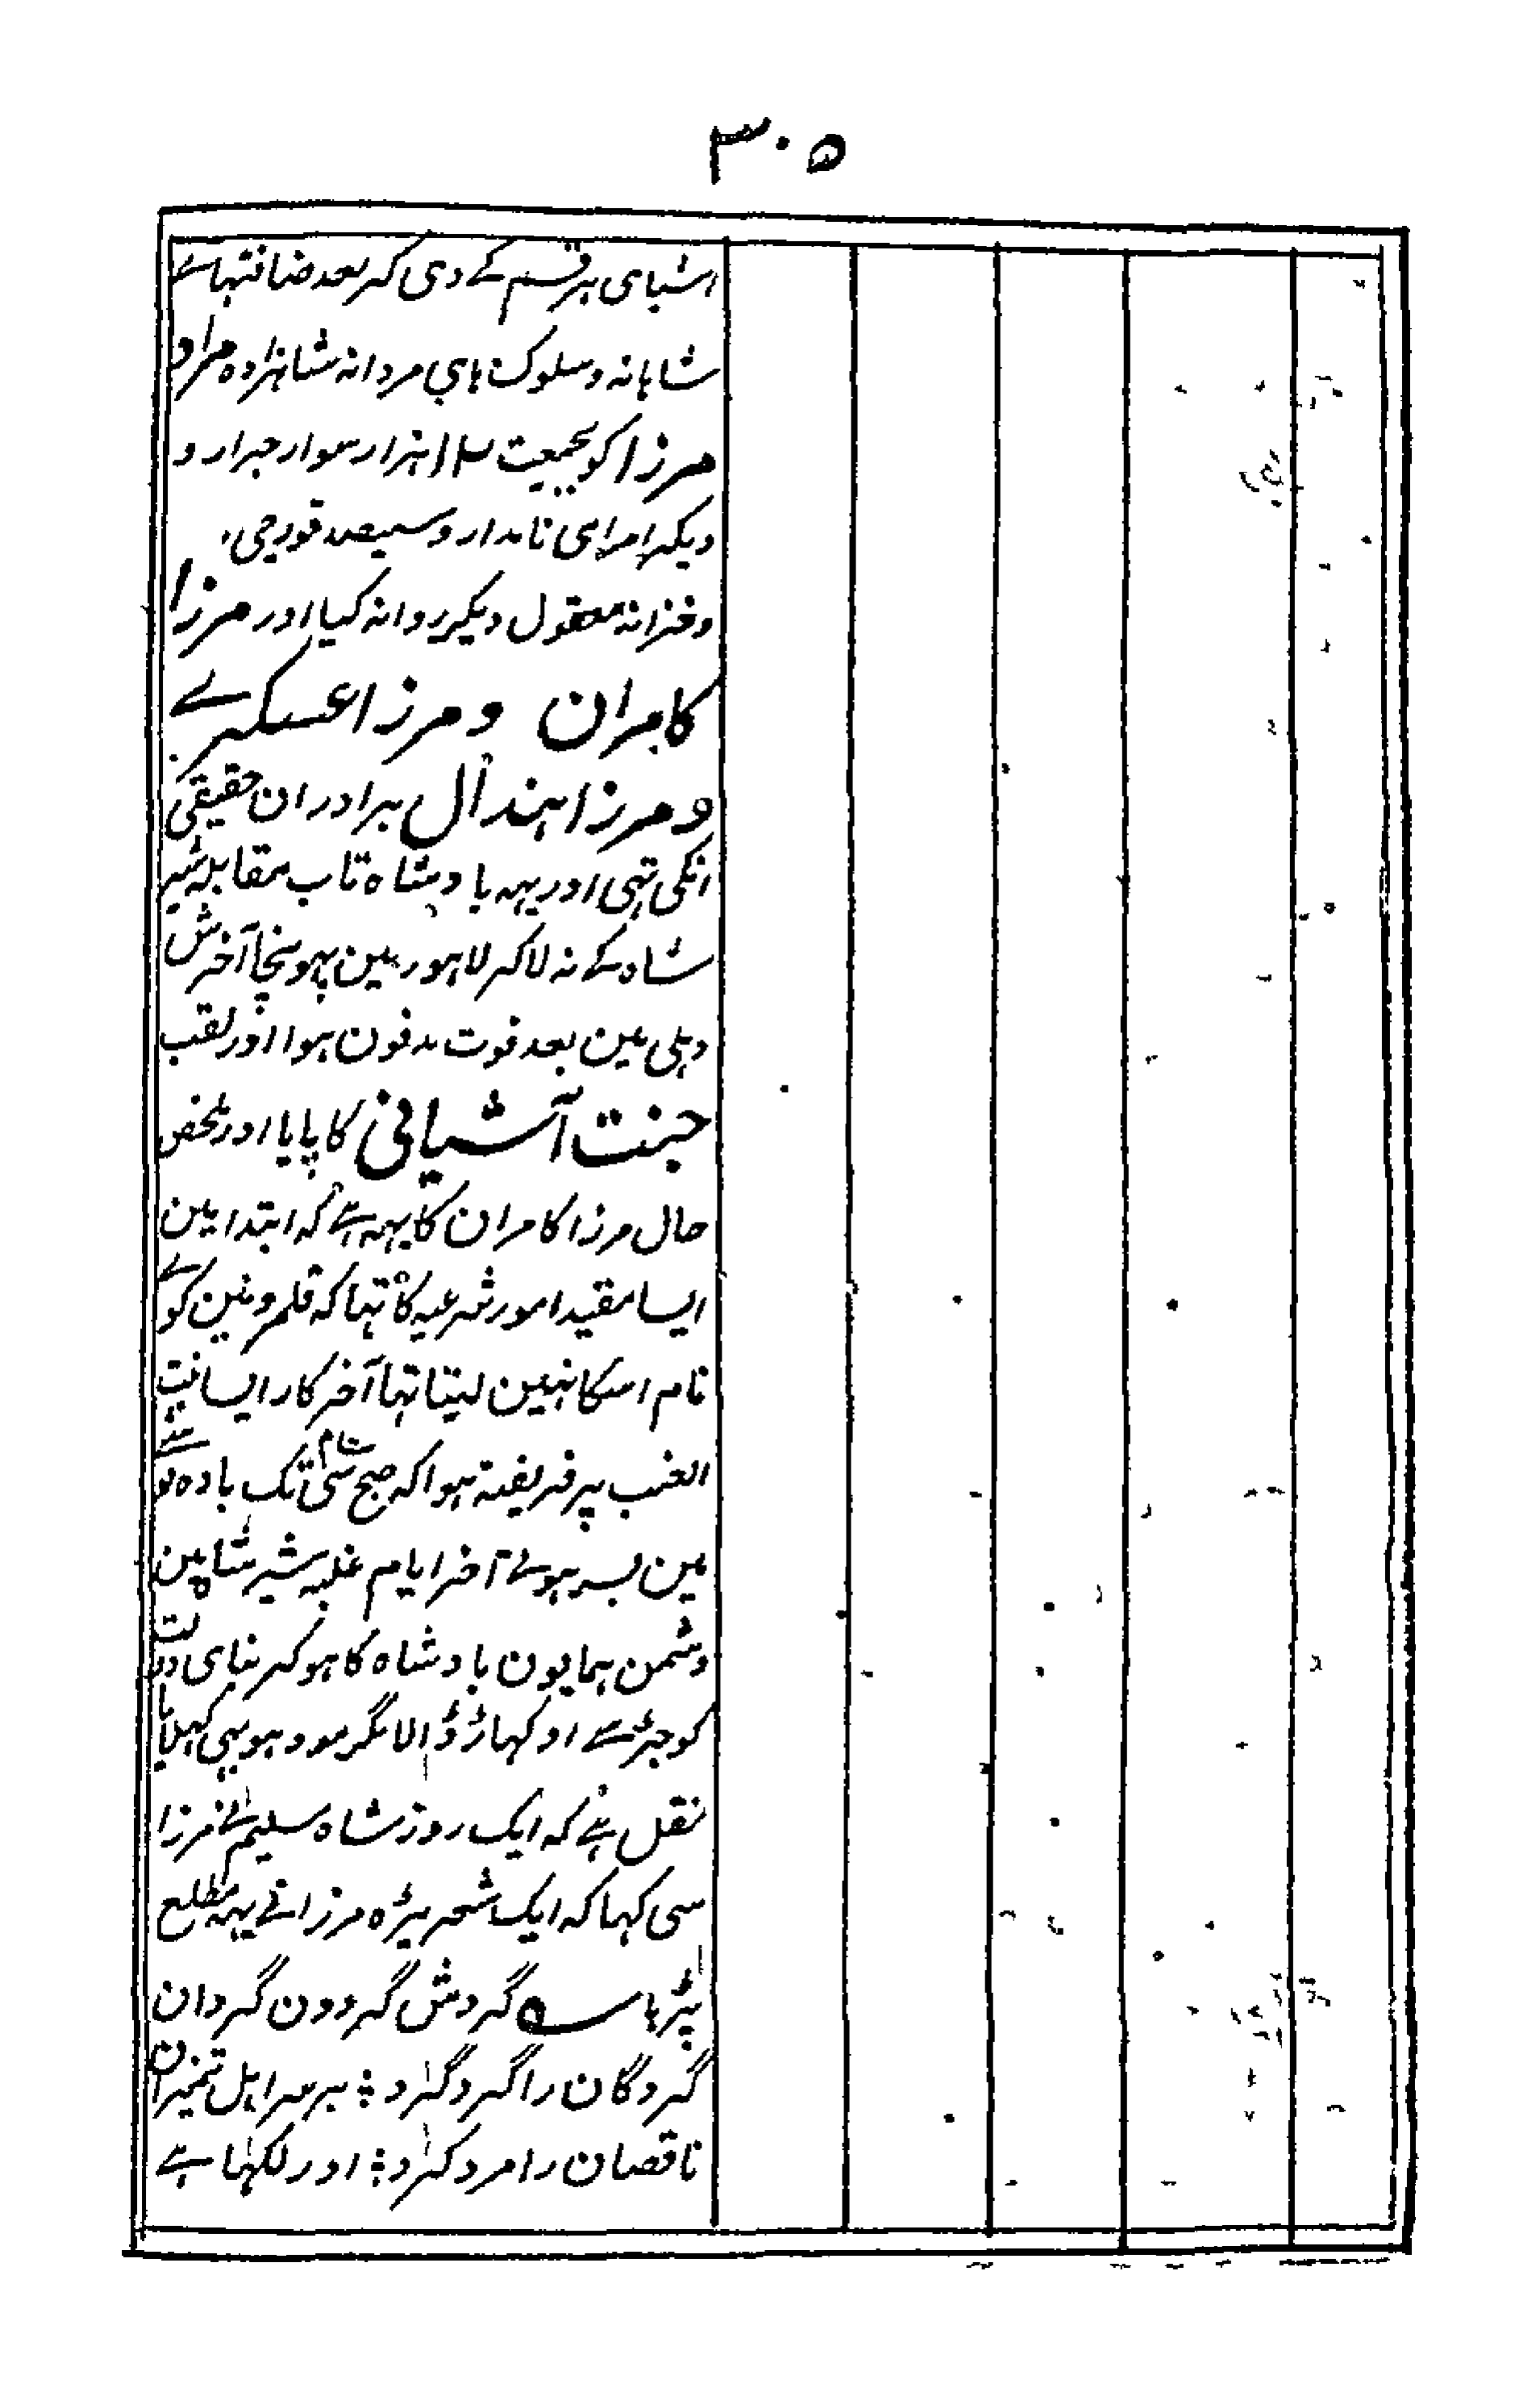 ۳۰۵
اشیای ہر قسم کے دی کر بعد ضیافتہاے
شاہانہ و سلوک ہای مردانہ شاہزادہ مراد
مرزا کو بجمعیت ۱۲ ہزار سوار جرار و
دیگر امرای نامدار و سیصد قورچی
و خزانہ معقول دیکر روانہ کیا اور مرزا
کامران و مرزا عسکرے
و مرزا ہندال برادران حقیقی
انکی تہی اور یہہ بادشاہ تاب مقابلہ شیر
شاہ کے نہ لاکر لاہور مین پہونچا آخرش
دہلی مین بعد فوت مدفون ہوا اور لقب
جنت آشیانی کا پایا اور ملخص
حال مرزا کامران کا یہہ ہے کہ ابتدا مین
ایسا مقید امور شرعیہ کا تہا کہ قلمرو مین کوے
نام اسکا نہین لیتا تہا آخر کار ایسا بنت
العنب پر فریفتہ ہوا کہ صبح سی شام تک بادہ نوشے
مین بسر ہوئے آخر ایام غلبہ شیر شاہ مین
دشمن ہمایون بادشاہ کا ہوکر بنای دولت
کو جڑ سے اوکہاڑ ڈالا مگر مودہو بہی کہلایا
نقل ہے کہ ایک روز شاہ سلیم نے مرزا
سی کہا کہ ایک شعر پڑہ مرزا نے یہہ مطلع
پڑہا ؎ گردش گردون گردان
گردگان را گرد کرد ؞ برسر اہل تمیزان
ناقصان را مرد کرد ؞ اور لکہا ہے